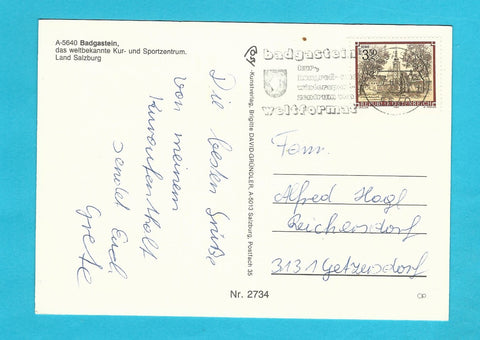 A-5640 Badgastein,
das weltbekannte Kur- und Sportzentrum.
Land Salzburg
Die besten Grüße
von meinem
Kuraufenthalt
sendet Euch
Grete
Kunstverlag, Brigitte DAVID-GRÜNDLER, A-5013 Salzburg, Postfach 35
badgastein
kur-,
kongreß-
wintersport-
weltformat
3.50
REPUBLIK ÖSTERREICH
Fam.
Alfred Hogl
Reichersdorf
3131 Getzersdorf
Nr. 2734